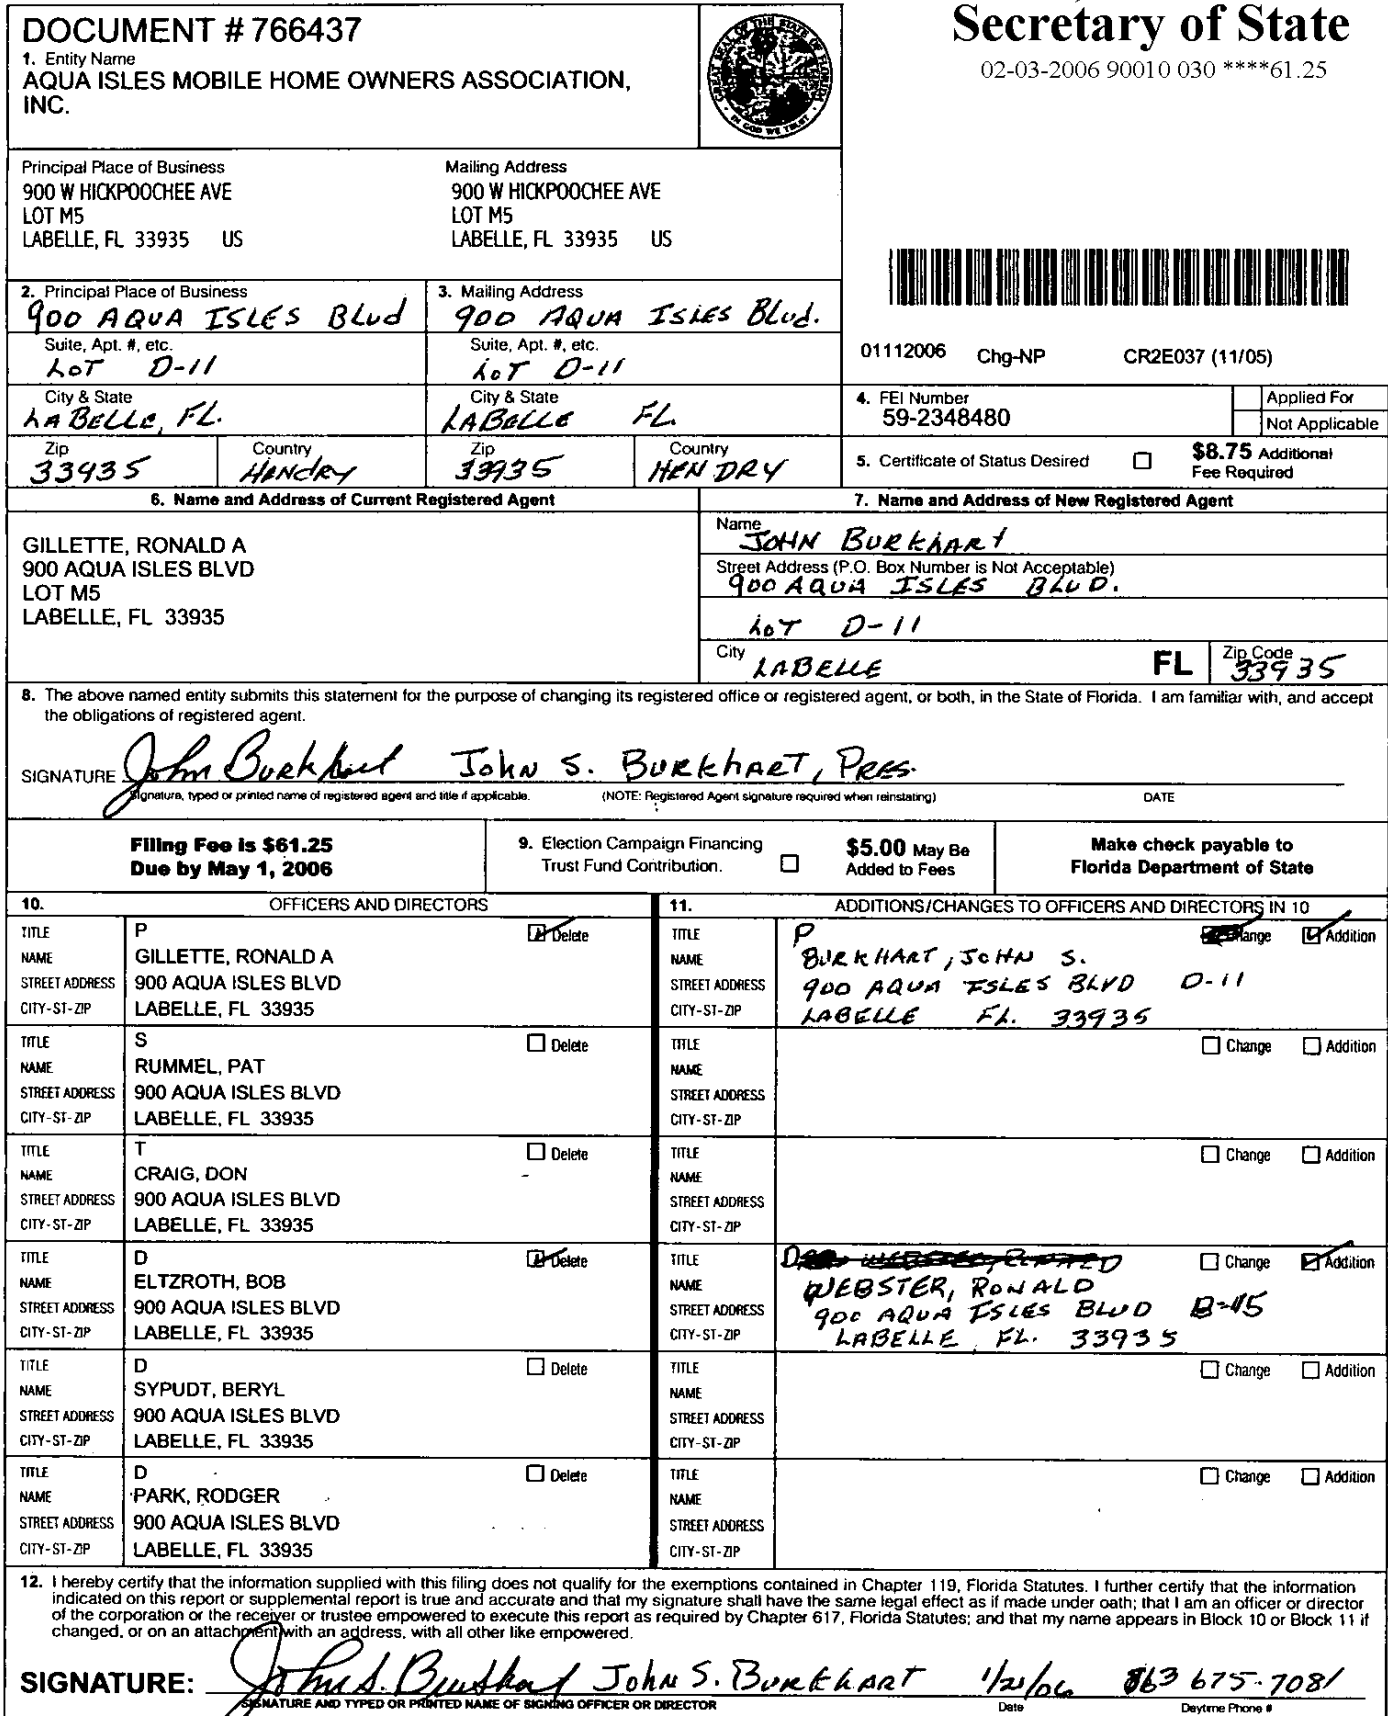 DOCUMENT # 766437
1. Entity Name
AQUA ISLES MOBILE HOME OWNERS ASSOCIATION,
INC.
Secretary of State
02-03-2006 90010 030 ****61.25
Principal Place of Business
900 W HICKPOOCHEE AVE
LOT M5
LABELLE, FL 33935 US
Mailing Address
900 W HICKPOOCHEE AVE
LOT M5
LABELLE, FL 33935 US
2. Principal Place of Business
900 AQUA ISLES Blvd
Suite, Apt. #, etc.
LOT D-11
City & State
LABELLE, FL.
Zip
33935
Country
HENDRY
3. Mailing Address
900 AQUA ISLES Blvd.
Suite, Apt. #, etc.
LOT D-11
City & State
LABELLE FL.
Zip
33935
Country
HENDRY
01112006 Chg-NP CR2E037 (11/05)
4. FEI Number
59-2348480
Applied For
Not Applicable
5. Certificate of Status Desired
$8.75 Additional
Fee Required
6. Name and Address of Current Registered Agent
GILLETTE, RONALD A
900 AQUA ISLES BLVD
LOT M5
LABELLE, FL 33935
7. Name and Address of New Registered Agent
Name
JOHN BURKHART
Street Address (P.O. Box Number is Not Acceptable)
900 AQUA ISLES BLVD.
LOT D-11
City LABELLE FL Zip Code 33935
8. The above named entity submits this statement for the purpose of changing its registered office or registered agent, or both, in the State of Florida. I am familiar with, and accept
the obligations of registered agent.
SIGNATURE John Burkhart JOHN S. BURKHART, PRES.
Signature, typed or printed name of registered agent and title if applicable. (NOTE: Registered Agent signature required when reinstating) DATE
Filing Fee is $61.25
Due by May 1, 2006
9. Election Campaign Financing
Trust Fund Contribution.
$5.00 May Be
Added to Fees
Make check payable to
Florida Department of State
10. OFFICERS AND DIRECTORS
11. ADDITIONS/CHANGES TO OFFICERS AND DIRECTORS IN 10
TITLE P Delete
NAME GILLETTE, RONALD A
STREET ADDRESS 900 AQUA ISLES BLVD
CITY-ST-ZIP LABELLE, FL 33935
TITLE P Change Addition
NAME BURKHART, JOHN S.
STREET ADDRESS 900 AQUA ISLES BLVD D-11
CITY-ST-ZIP LABELLE FL. 33935
TITLE S Delete
NAME RUMMEL, PAT
STREET ADDRESS 900 AQUA ISLES BLVD
CITY-ST-ZIP LABELLE, FL 33935
TITLE Change Addition
NAME
STREET ADDRESS
CITY-ST-ZIP
TITLE T Delete
NAME CRAIG, DON
STREET ADDRESS 900 AQUA ISLES BLVD
CITY-ST-ZIP LABELLE, FL 33935
TITLE Change Addition
NAME
STREET ADDRESS
CITY-ST-ZIP
TITLE D Delete
NAME ELTZROTH, BOB
STREET ADDRESS 900 AQUA ISLES BLVD
CITY-ST-ZIP LABELLE, FL 33935
TITLE D Change Addition
NAME WEBSTER, RONALD
STREET ADDRESS 900 AQUA ISLES BLVD B-45
CITY-ST-ZIP LABELLE, FL. 33935
TITLE D Delete
NAME SYPUDT, BERYL
STREET ADDRESS 900 AQUA ISLES BLVD
CITY-ST-ZIP LABELLE, FL 33935
TITLE Change Addition
NAME
STREET ADDRESS
CITY-ST-ZIP
TITLE D Delete
NAME PARK, RODGER
STREET ADDRESS 900 AQUA ISLES BLVD
CITY-ST-ZIP LABELLE, FL 33935
TITLE Change Addition
NAME
STREET ADDRESS
CITY-ST-ZIP
12. I hereby certify that the information supplied with this filing does not qualify for the exemptions contained in Chapter 119, Florida Statutes. I further certify that the information
indicated on this report or supplemental report is true and accurate and that my signature shall have the same legal effect as if made under oath; that I am an officer or director
of the corporation or the receiver or trustee empowered to execute this report as required by Chapter 617, Florida Statutes; and that my name appears in Block 10 or Block 11 if
changed, or on an attachment with an address, with all other like empowered.
SIGNATURE: John S. Burkhart JOHN S. BURKHART 1/21/06 863 675-7081
SIGNATURE AND TYPED OR PRINTED NAME OF SIGNING OFFICER OR DIRECTOR Date Daytime Phone #